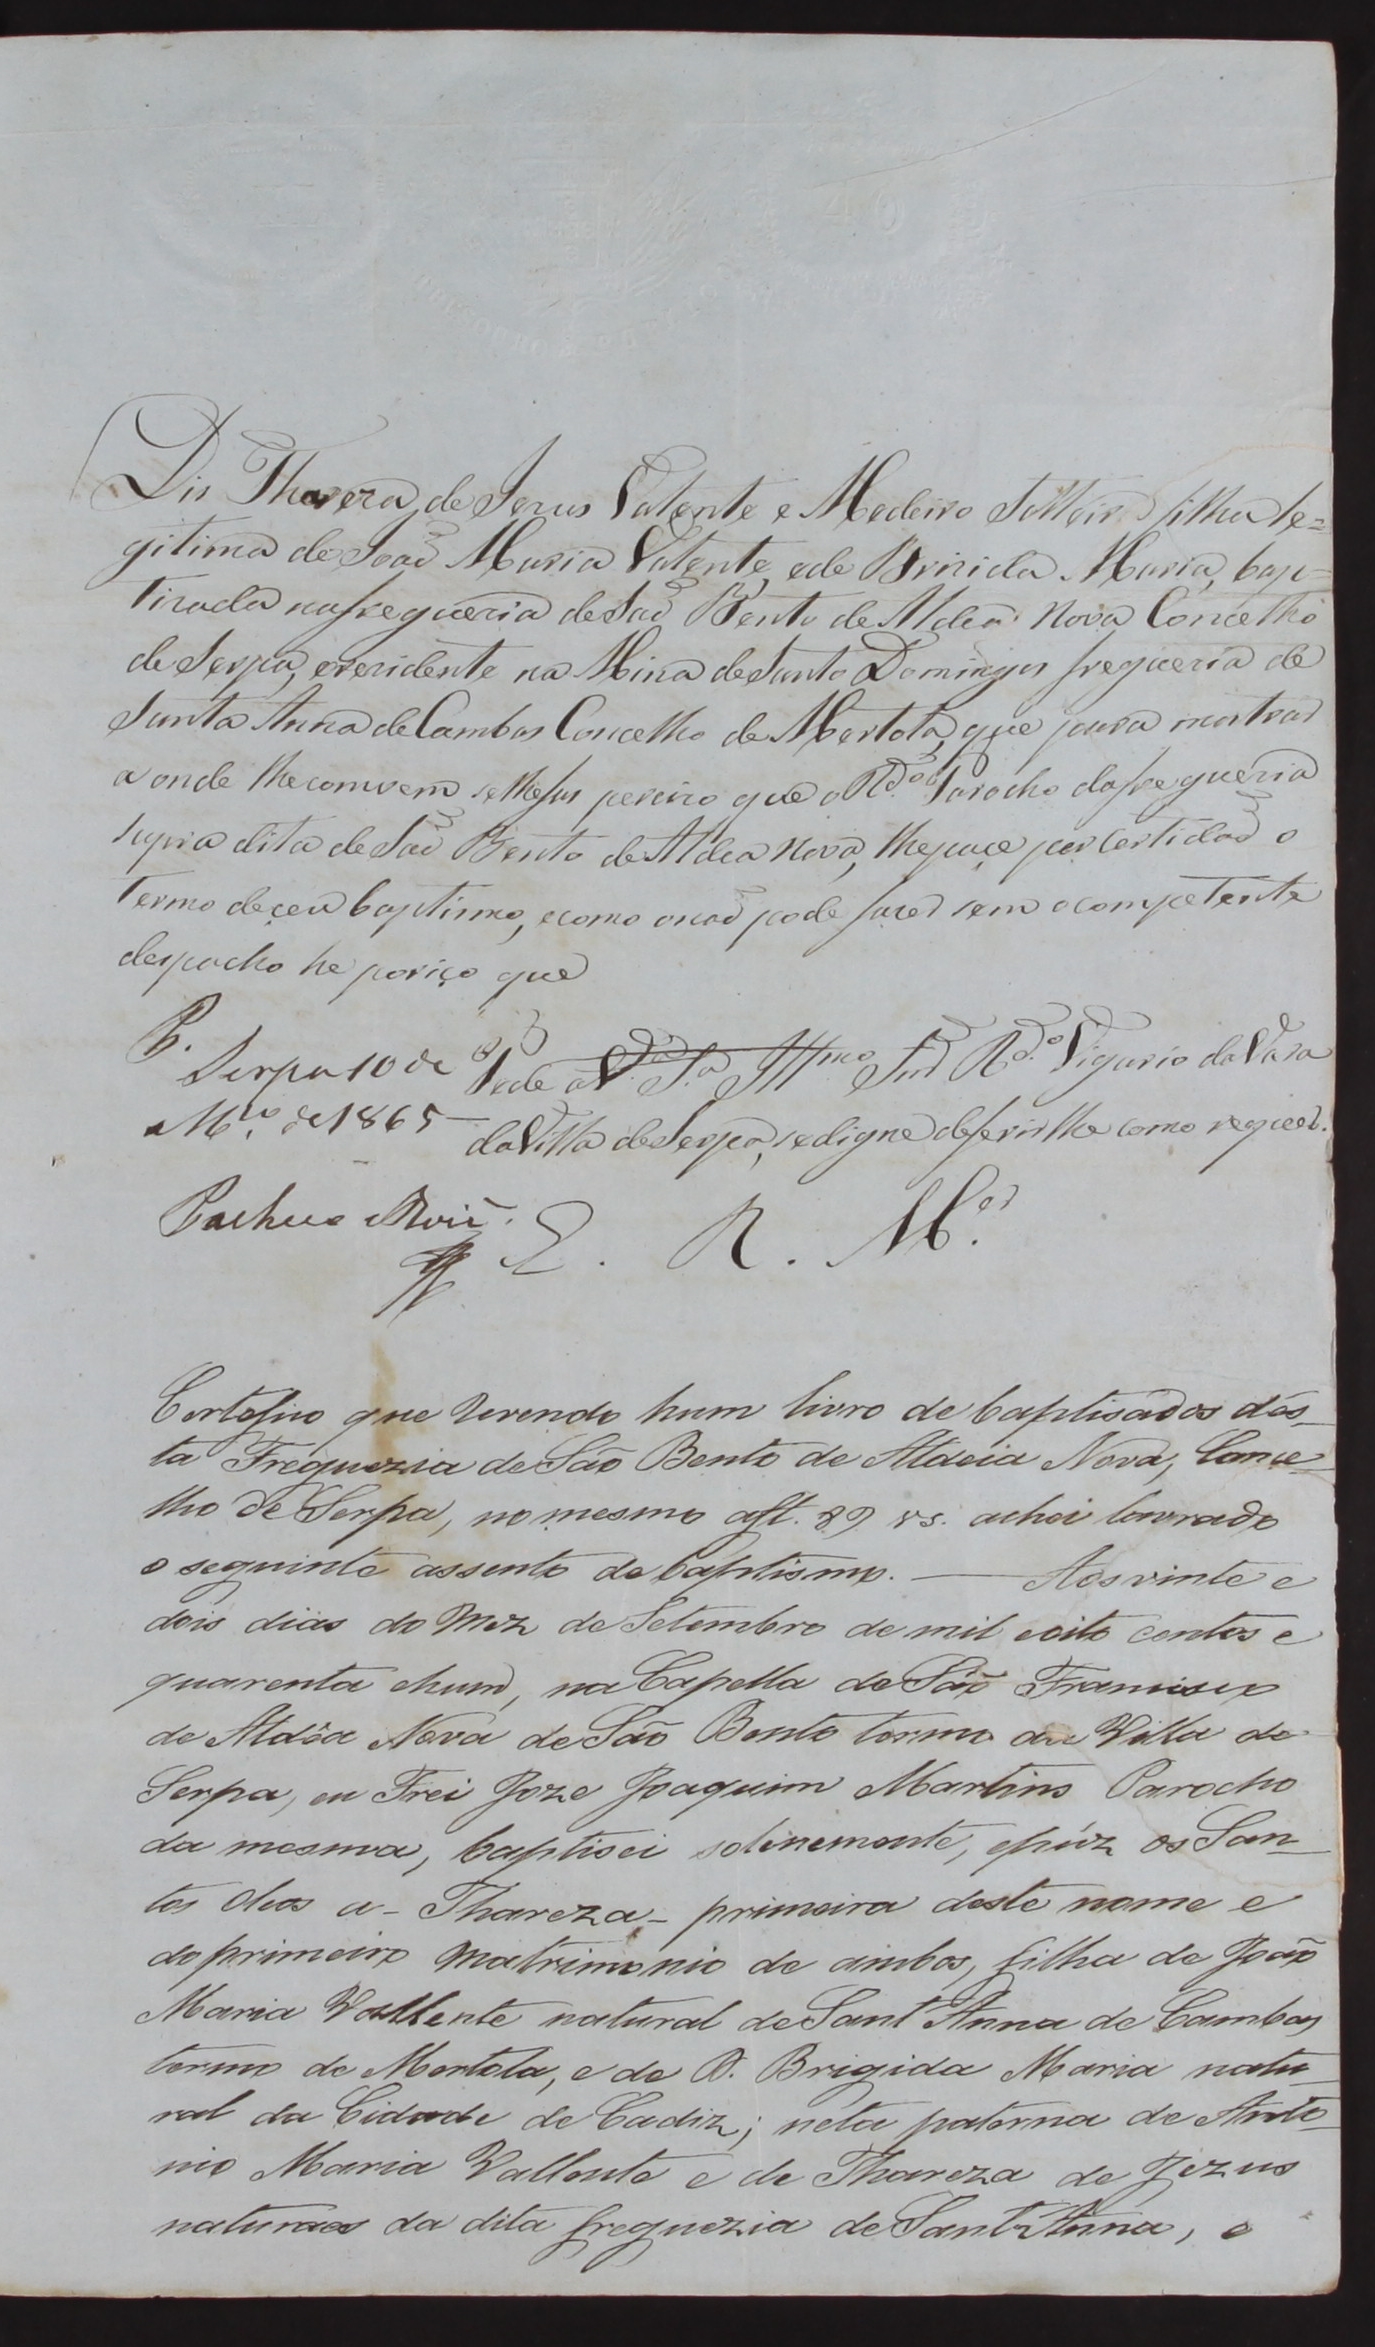 Dis Thereza de Jezus Valente e Medeiro Solteira filha le=
gitima de João Maria Valente, e de Brizida Maria, bap=
tizada na fregueria de São Bento de Aldea Nova Concelho
de Serpa, e rezidente na Mina de Santo Domingos fregueria de
Santa Anna de Cambas Concelho de Mertola, que para mostrar
a onde lhe comvem se lhe fas percizo que o Rd.º Parocho da fregueria
supra dita de São Bento de Aldea Nova, lhe pace por certidão o
termo de ceu baptismo, e como o não pode fazer sem o competente
despacho he poriço que
P.
Serpa 10 de
M.ço de 1865
Pede a V.ª S.ª Illmo Snr Rd.º Vigario da Vara
da Villa de Serpa, se digne deferir lhe como requer.
Pacheco
E. R. M.ce
Certefico que revendo hum livro de baptisados des-
ta Freguezia de São Bento de Aldeia Nova, Conce-
lho de Serpa, no mesmo a fl. 89 vs. achei lavrado
o seguinte assento de baptismo. — Aos vinte e
dois dias do Mez de Setembro de mil eoito centos e
quarenta ehum, na Capella de São Francisco
de Aldêa Nova de São Bento termo da Villa de
Serpa, eu Frei Joze Joaquim Martins Parocho
da mesma, baptisei solenemente, epúz os San-
tos Oleos a - Thareza - primeira deste nome e
do primeiro Matrimonio de ambos, filha de João
Maria Vallente natural de Sant Anna de Cambas
termo de Mertola, e de D. Brigida Maria natu-
ral da Cidade de Cadiz; neta paterna de Anto-
nio Maria Vallente e de Thareza de Jezus
naturaes da dita freguezia de Sant Anna, e